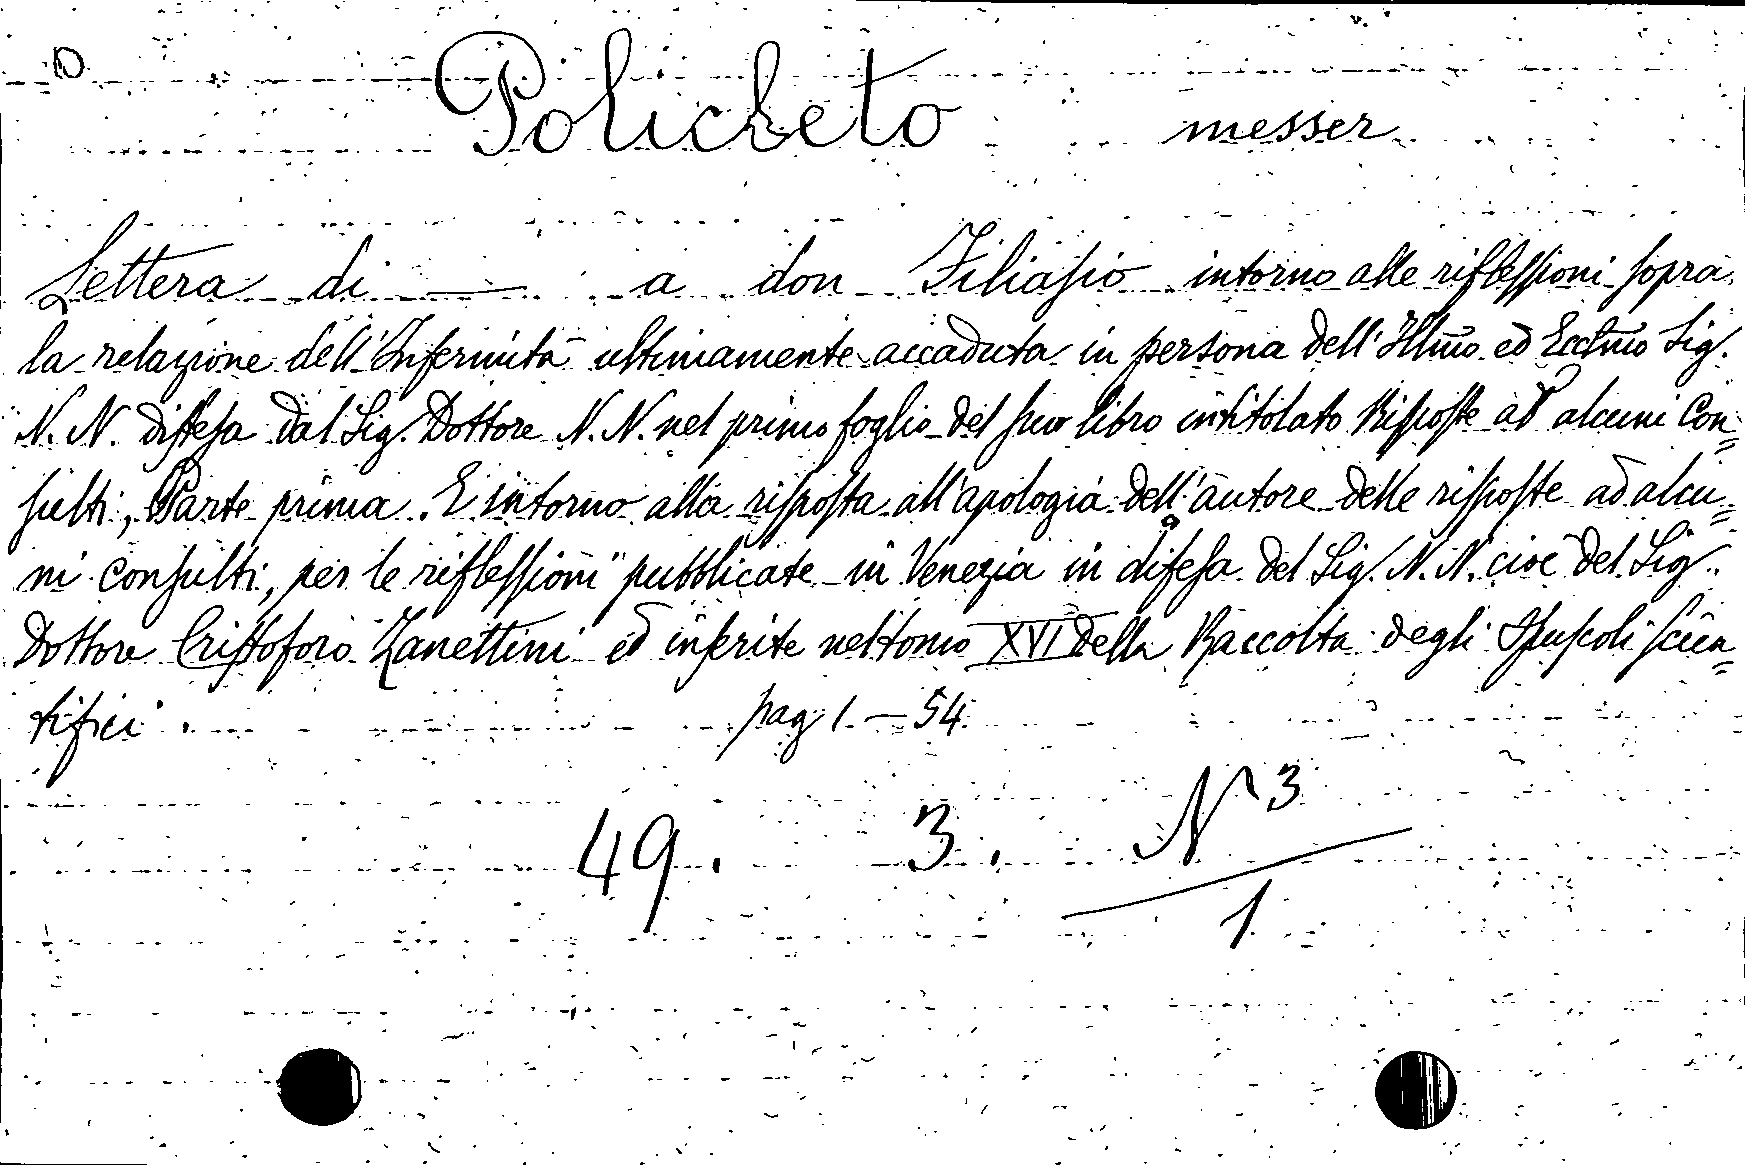 Policleto messer
Lettera di — a don Filiasio intorno alle riflessioni sopra
la relazione dell'Infermità ultimamente accaduta in persona dell'Illmo ed Ecclmo Sig.
N. N. distesa dal Sig. Dottore N. N. nel primo foglio del suo libro intitolato Risposte ad alcuni Con=
sulti, Parte prima. E intorno alla risposta all'apologia dell'autore delle risposte ad alcu=
ni consulti, per le riflessioni pubblicate in Venezia in difesa del Sig. N. N. cioè del Sig.
Dottore Cristoforo Zanettini ed inserite nel tomo XVI della Raccolta degli Opuscoli scien=
tifici. pag 1 — 54
49. 3. N 3
1